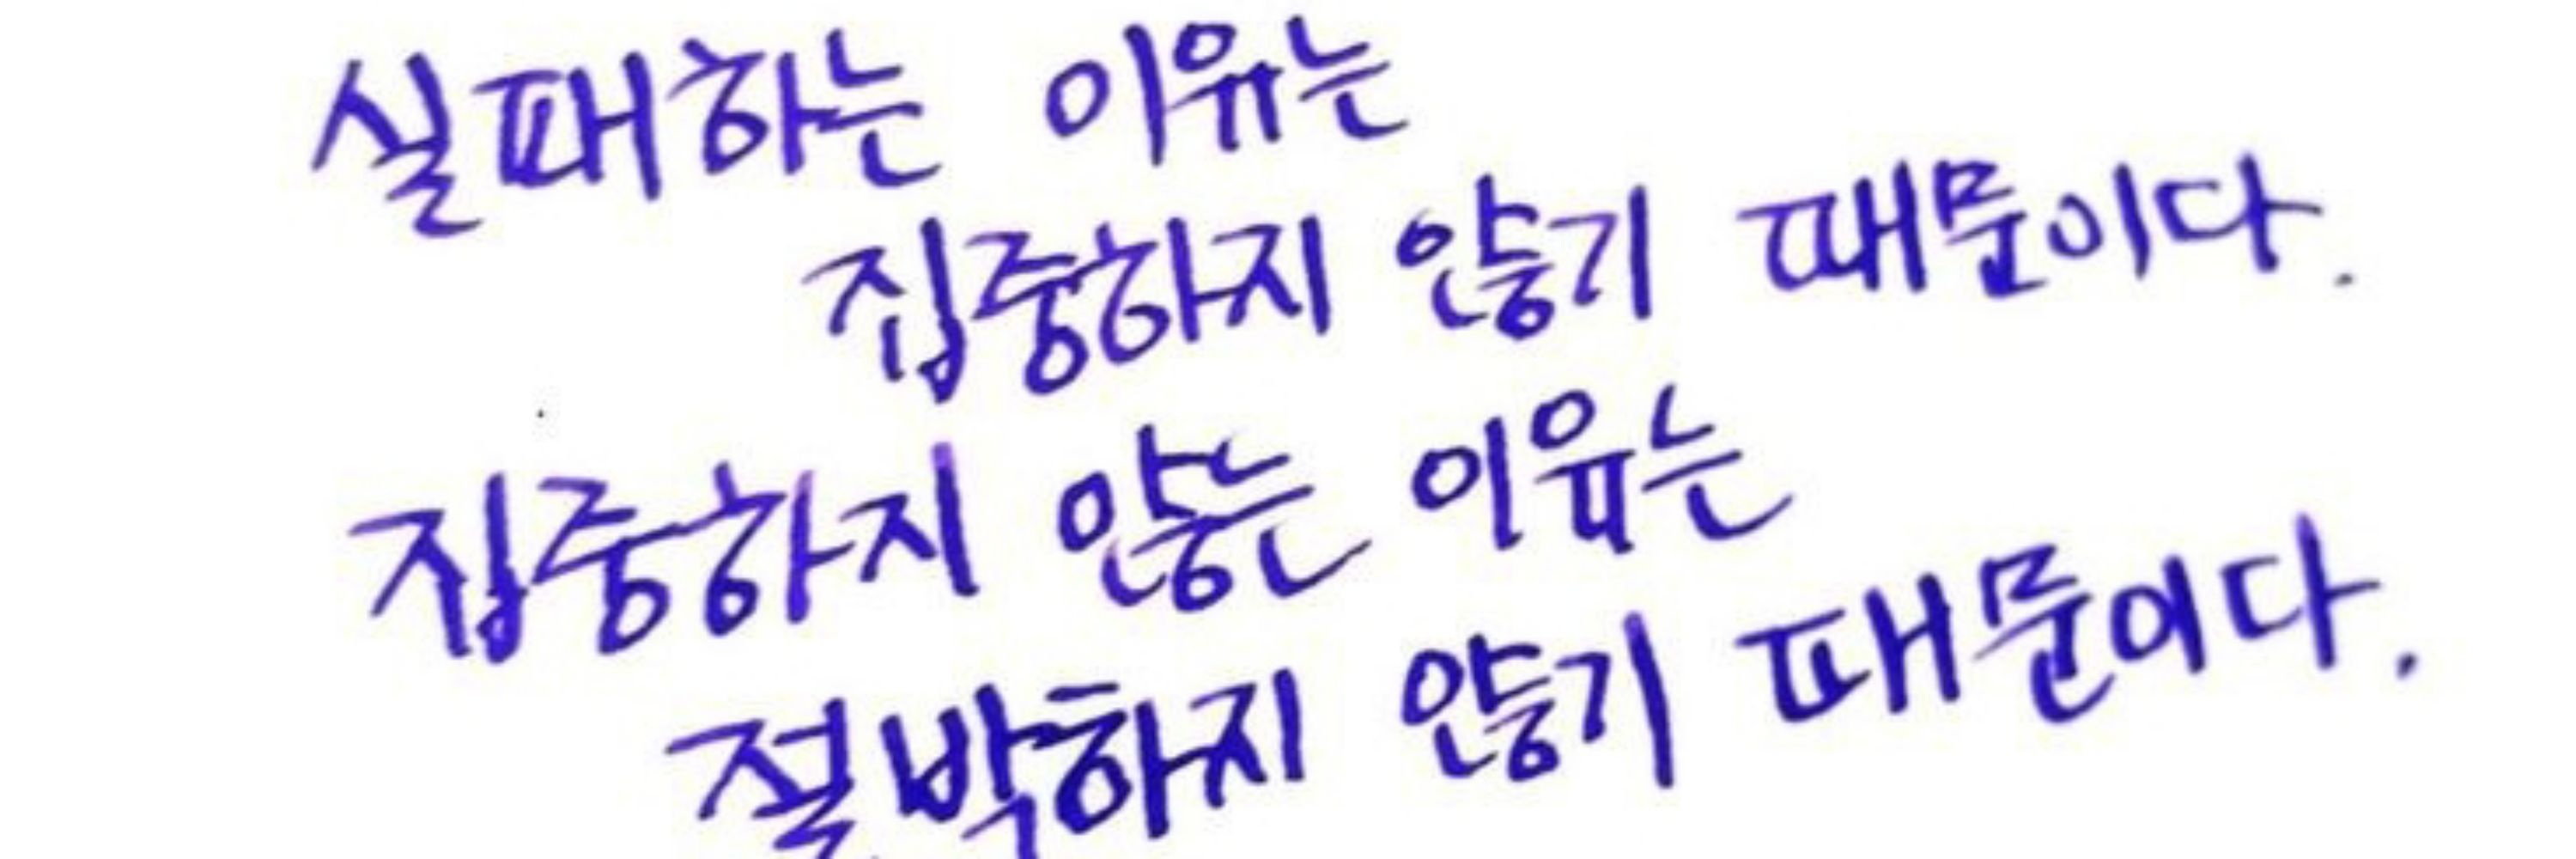 실패하는 이유는
집중하지 않기 때문이다.
집중하지 않는 이유는
절박하지 않기 때문이다.